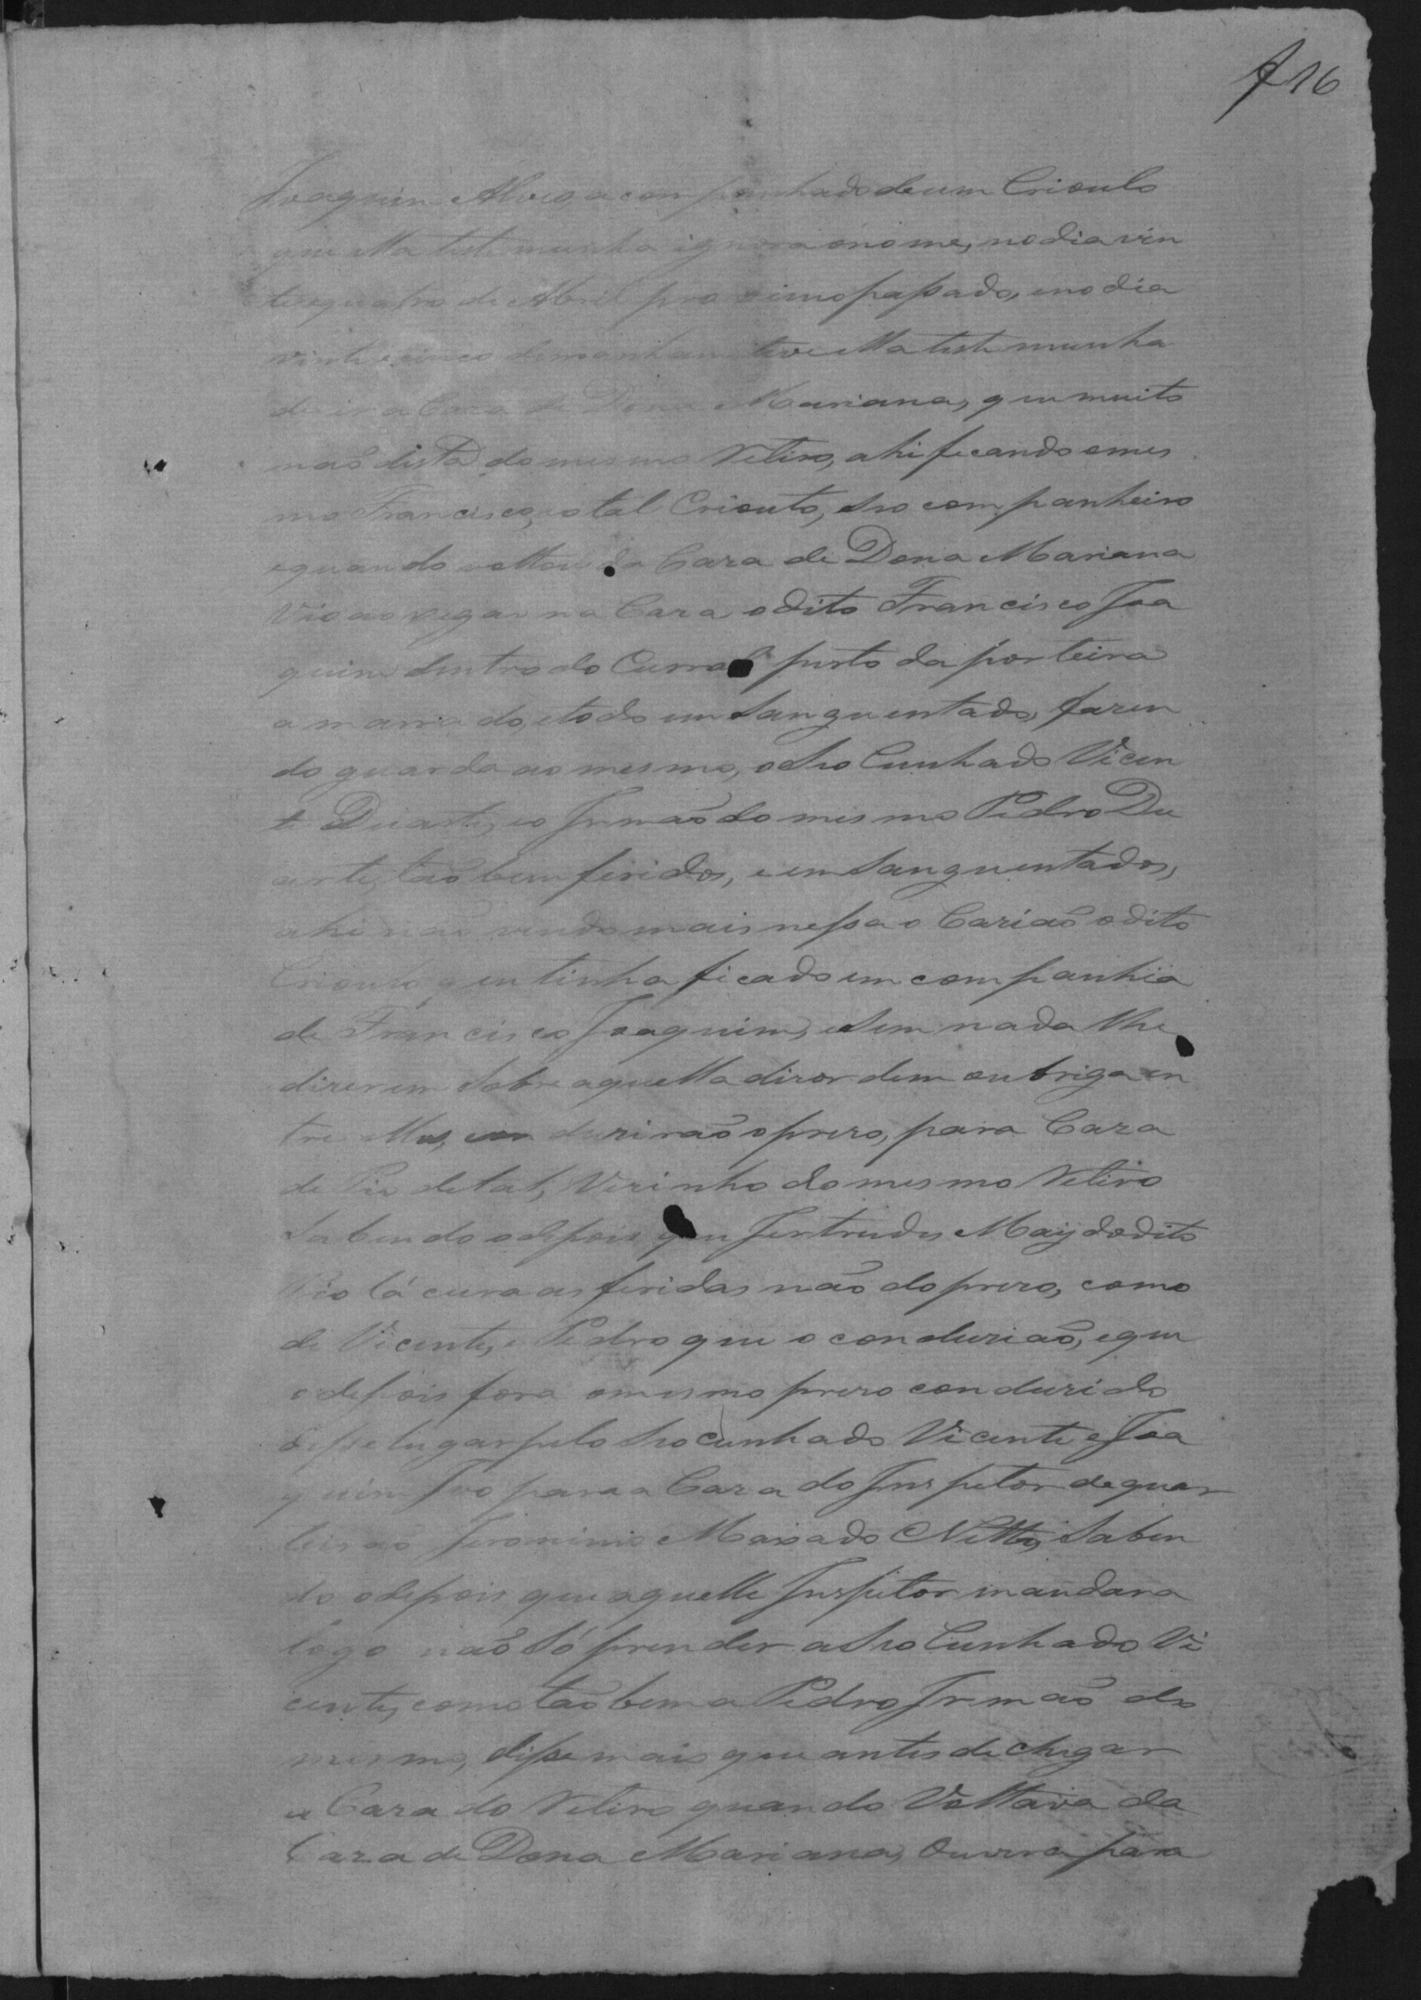 f 16
Joaquim Alves acompanhado de um Crioulo
que ella testemunha ignora o nome, no dia vin
te quatro de Abril proximo passado, e no dia
vinte e cinco de manhan teve ella testemunha
de ir a Caza de Dona Mariana, que muito
não dista do mesmo Retiro, ahi ficando o mes
mo Francisco, e o tal Crioulo, seo companheiro
e quando voltou da Caza de Dona Mariana
Vio ao xegar na Caza o dito Francisco Joa
quim dentro do Curral perto da porteira
amarrado, e todo emsanguentado, fazen
do guarda ao mesmo, o seo Cunhado Vicen
te Duarte, e o Irmão do mesmo Pedro Du
arte, tãobem feridos, e emsanguentados,
ahi não vendo mais nessa ocazião o dito
Crioulo que tinha ficado em companhia
de Francisco Joaquim, e sem nada lhe
dizerem sobre aquella dizordem ou briga en
tre elles, conduzirão o prezo, para Caza
de Pio de tal, Vizinho do mesmo Retiro
Sabendo odepois que Gertrudes May do dito
Pio lá cura as feridas não do prezo, como
de Vicente, e Pedro que o conduzião, e que
odepois fora o mesmo prezo conduzido
desse lugar pelo seo cunhado Vicente e Joa
quim Ivo para a Caza do Inspetor de quar
teirão Jeronimo Maxado Netto, Saben
do odepois que aquelle Inspetor mandara
logo não só prender a seo Cunhado Vi
cente, como tãobem a Pedro Irmão do
mesmo, disse mais que antes de chegar
a Caza do Retiro quando Voltava da
Caza de Dona Mariana, Ouvira para